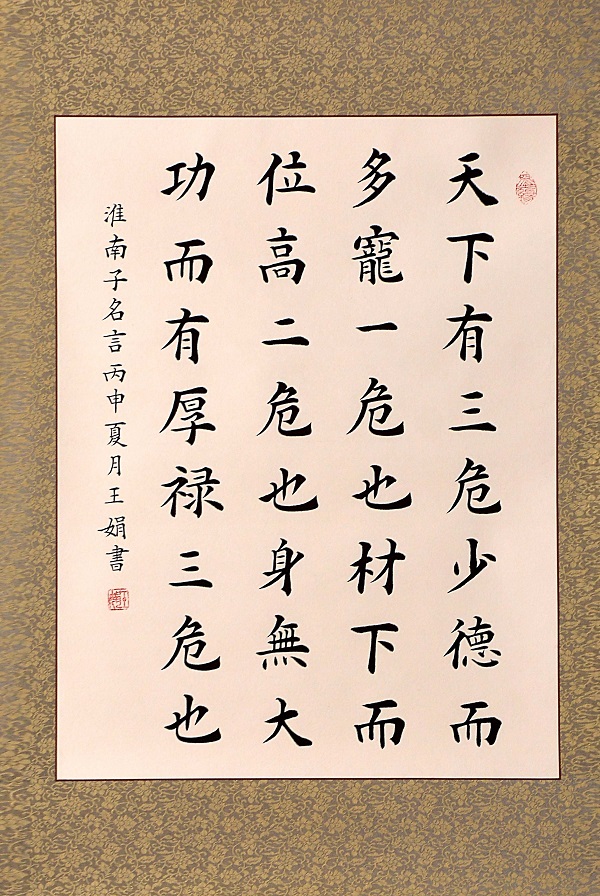 天下有三危少德而
多寵一危也材下而
位高二危也身無大
功而有厚禄三危也
淮南子名言丙申夏月王娟書